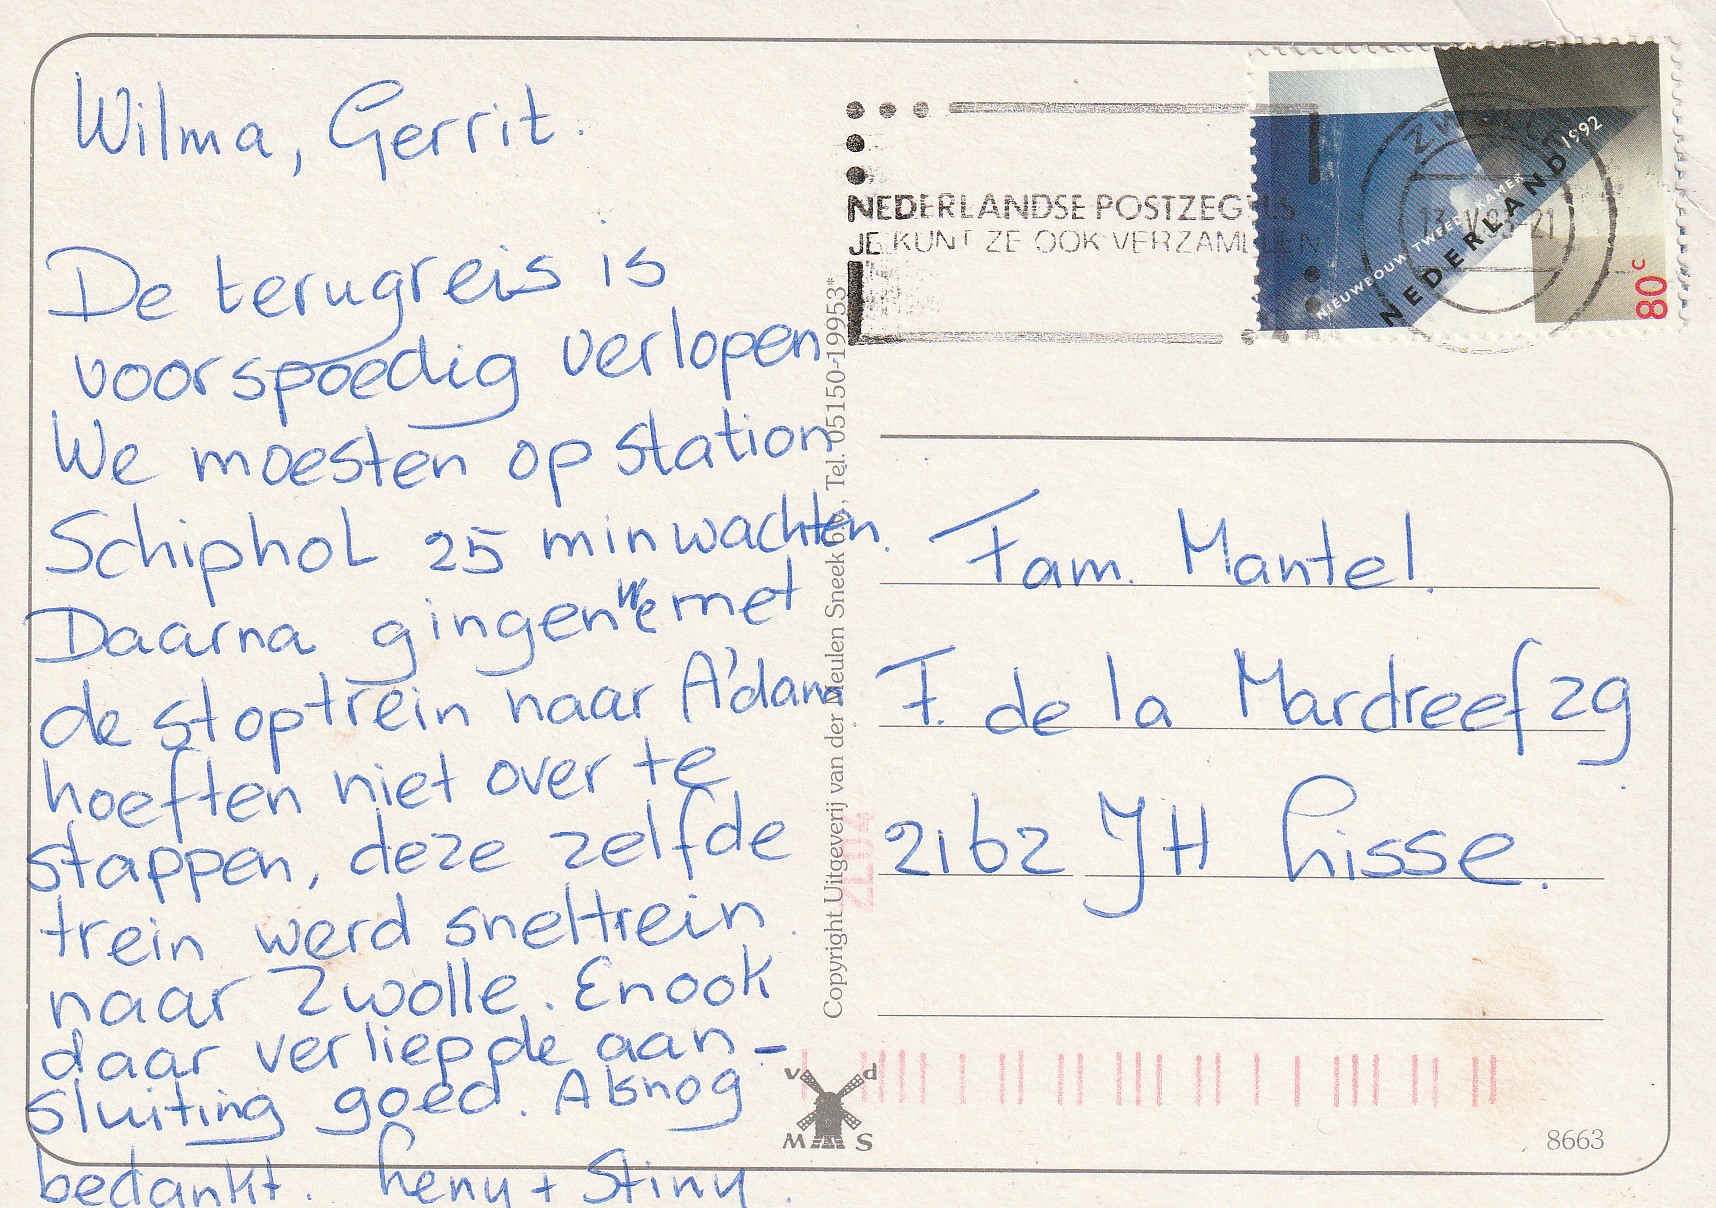 Wilma, Gerrit.
De terugreis is
voorspoedig verlopen
We moesten op station
Schiphol 25 min wachten.
Daarna gingen we met
de stoptrein naar A'dam.
hoeften niet over te
stappen, deze zelfde
trein werd sneltrein.
naar Zwolle. En ook
daar verliep de aan-
sluiting goed. Alsnog
bedankt. Leny + Stiny.
NEDERLANDSE POSTZEGELS
JE KUNT ZE OOK VERZAMELEN
ZWOLLE
NIEUWBOUW TWEEDE KAMER 1992
NEDERLAND
80c
Copyright Uitgeverij van der Meulen Sneek b.v., Tel. 05150-19953*
Fam. Mantel.
F. de la Mardreef 29
2162 JH Lisse.
v d
M S
8663